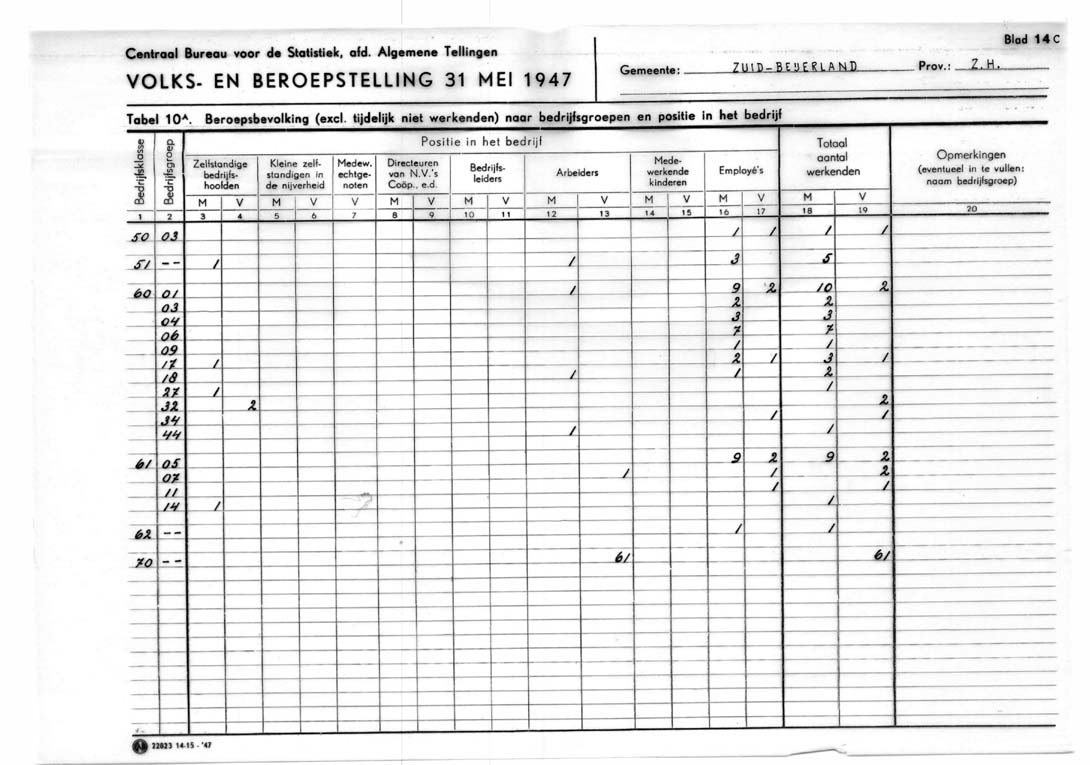 Blad 14 C
Centraal Bureau voor de Statistiek, afd. Algemene Tellingen
VOLKS- EN BEROEPSTELLING 31 MEI 1947
Gemeente: ZUID-BEIJERLAND Prov.: Z.H.
Tabel 10A. Beroepsbevolking (excl. tijdelijk niet werkenden) naar bedrijfsgroepen en positie in het bedrijf
Bedrijfsklasse Bedrijfsgroep Positie in het bedrijf Totaal aantal werkenden Opmerkingen (eventueel in te vullen: naam bedrijfsgroep)
Zelfstandige bedrijfs-hoofden Kleine zelf-standigen in de nijverheid Medew. echtge-noten Directeuren van N.V.'s Coöp., e.d. Bedrijfs-leiders Arbeiders Mede-werkende kinderen Employé's
M V M V V M V M V M V M V M V M V
1 2 3 4 5 6 7 8 9 10 11 12 13 14 15 16 17 18 19 20
50 03 1 1 1 1
51 -- 1 1 3 5
60 01 1 9 2 10 2
03 2 2
04 3 3
06 7 7
09 1 1
17 1 2 1 3 1
18 1 1 2
27 1 1
32 2 2
34 1 1
44 1 1
61 05 9 2 9 2
07 1 1 2
11 1 1
14 1 1
62 -- 1 1
70 -- 61 61
22823 14-15 - '47